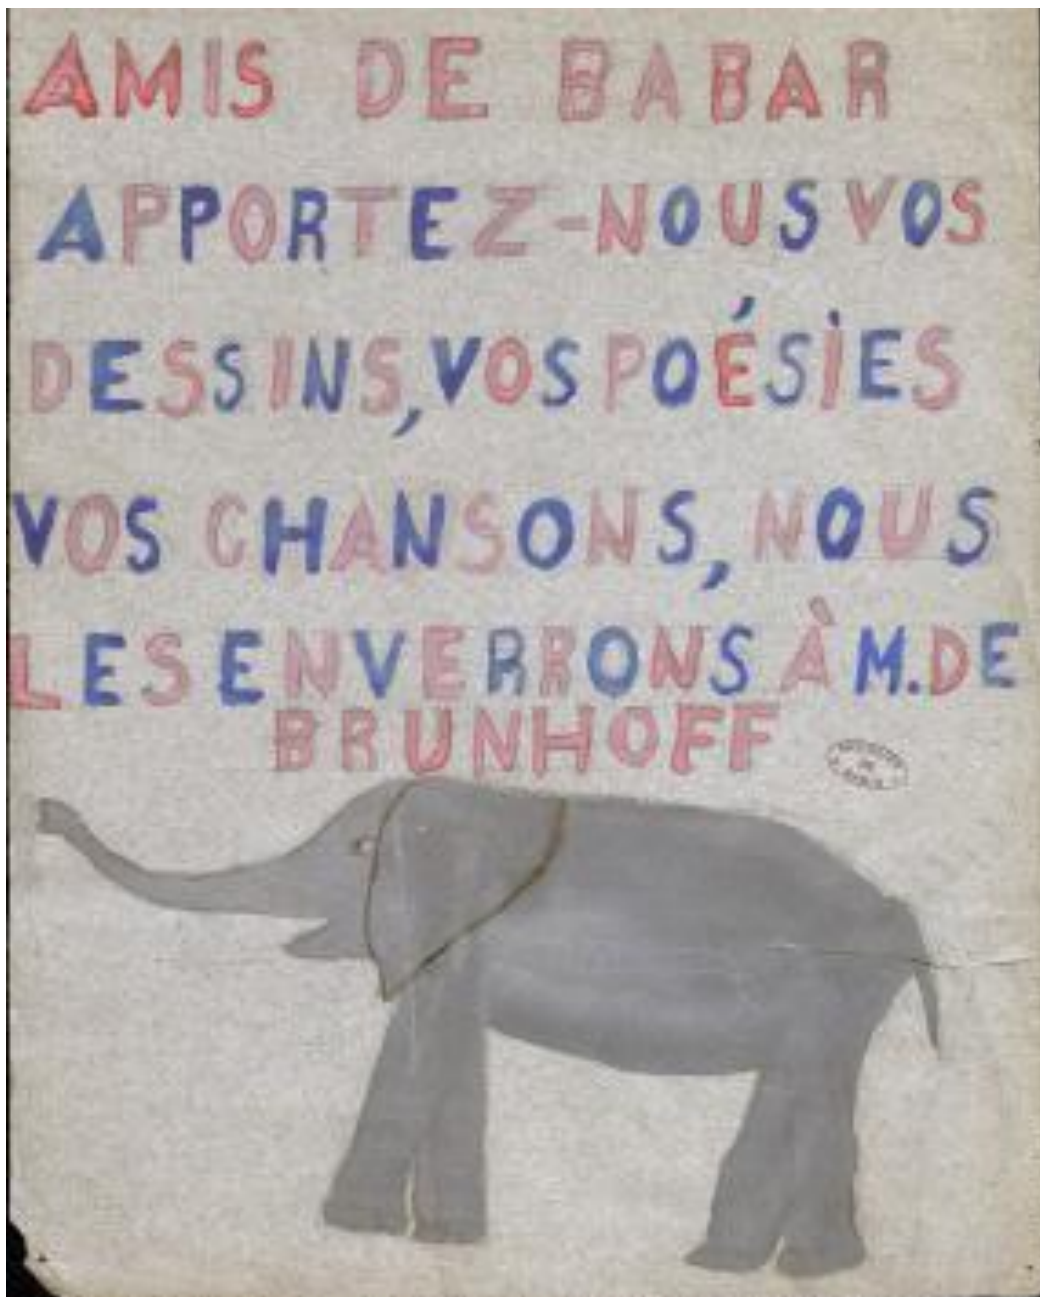 AMIS DE BABAR
APPORTEZ-NOUS VOS
DESSINS, VOS POÉSIES
VOS CHANSONS, NOUS
LES ENVERRONS À M. DE
BRUNHOFF